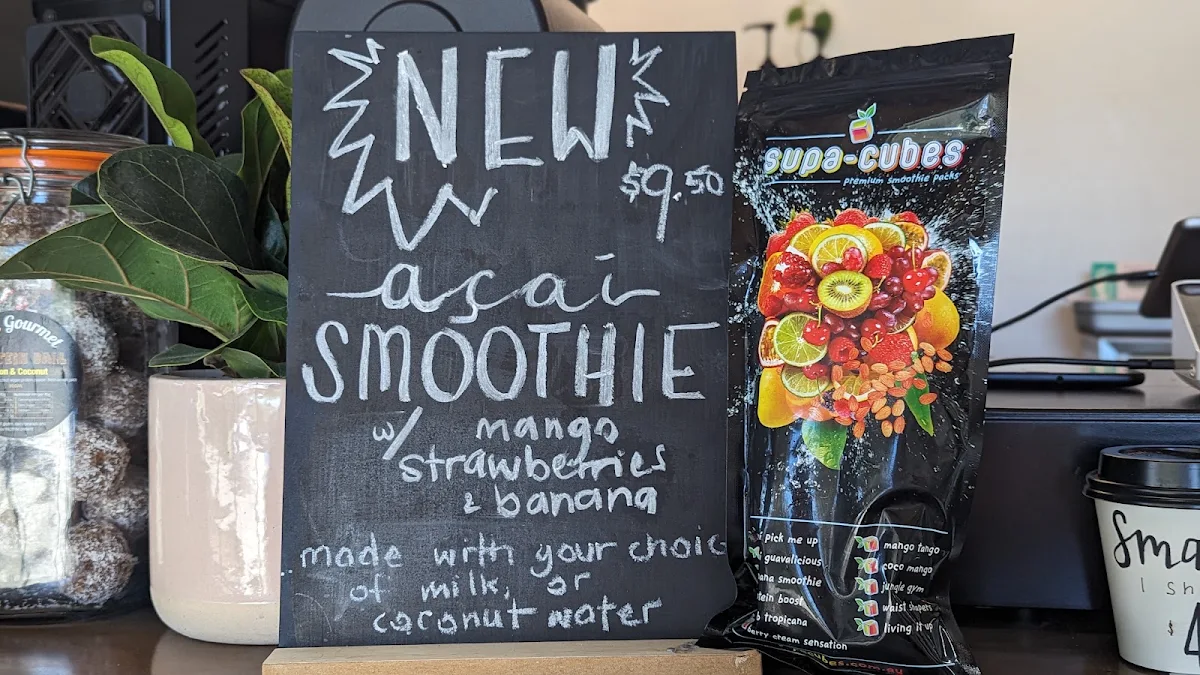 NEW
$9.50
açaí
SMOOTHIE
w/ mango
strawberries
& banana
made with your choic
of milk, or
coconut water
supa-cubes
premium smoothie packs
pick me up
guavalicious
smoothie
boost
tropicana
cream sensation
mango tango
coco mango
jungle gym
waist shapers
living it up
Gourmet
& Coconut
Sma
1 sh
$ 4